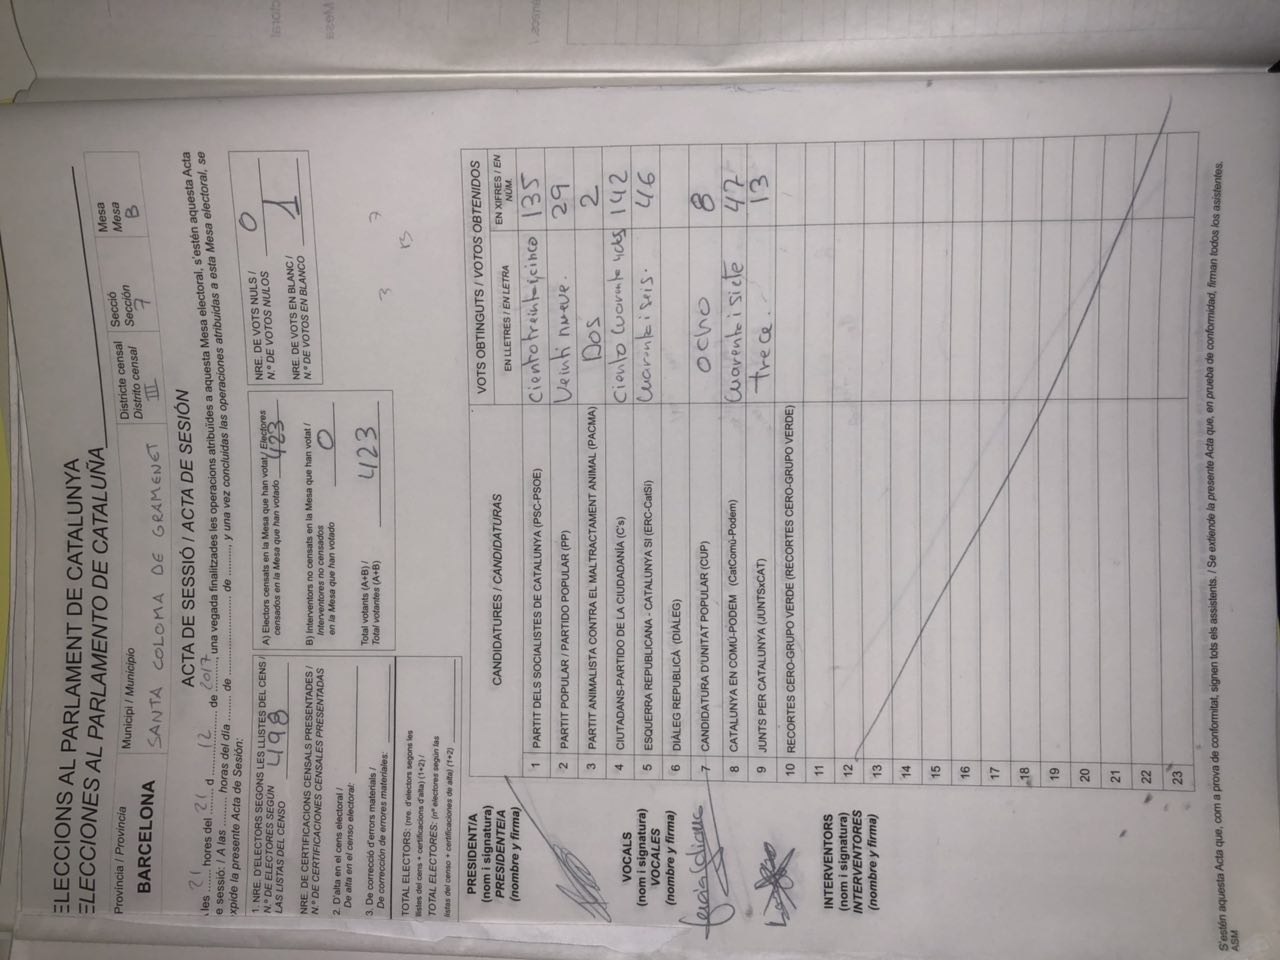 ELECCIONS AL PARLAMENT DE CATALUNYA
ELECCIONES AL PARLAMENTO DE CATALUÑA
Província / Provincia
BARCELONA
Municipi / Municipio
SANTA COLOMA DE GRAMENET
Districte censal
Distrito censal
III
Secció
Sección
7
Mesa
Mesa
B
ACTA DE SESSIÓ / ACTA DE SESIÓN
les 21 hores del 21 d 12 de 2017, una vegada finalitzades les operacions atribuïdes a aquesta Mesa electoral, s'estén aquesta Acta
e sessió: / A las ........ horas del día ........ de ........ de ........ y una vez concluidas las operaciones atribuidas a esta Mesa electoral, se
xpide la presente Acta de Sesión:
1. NRE. D'ELECTORS SEGONS LES LLISTES DEL CENS /
N.º DE ELECTORES SEGÚN
LAS LISTAS DEL CENSO 498
NRE. DE CERTIFICACIONS CENSALS PRESENTADES /
N.º DE CERTIFICACIONES CENSALES PRESENTADAS
2. D'alta en el cens electoral /
De alta en el censo electoral:
3. De correcció d'errors materials /
De corrección de errores materiales:
TOTAL ELECTORS: (nre. d'electors segons les
llistes del cens + certificacions d'alta) (1+2) /
TOTAL ELECTORES: (nº electores según las
listas del censo + certificaciones de alta) (1+2)
A) Electors censats en la Mesa que han votat / Electores
censados en la Mesa que han votado 423
B) Interventors no censats en la Mesa que han votat /
Interventores no censados
en la Mesa que han votado 0
Total votants (A+B) /
Total votantes (A+B) 423
NRE. DE VOTS NULS /
N.º DE VOTOS NULOS 0
NRE. DE VOTS EN BLANC /
N.º DE VOTOS EN BLANCO 1
CANDIDATURES / CANDIDATURAS
VOTS OBTINGUTS / VOTOS OBTENIDOS
EN LLETRES / EN LETRA
EN XIFRES / EN NÚM.
1 PARTIT DELS SOCIALISTES DE CATALUNYA (PSC-PSOE) Ciento treinta y cinco 135
2 PARTIT POPULAR / PARTIDO POPULAR (PP) Veinti nueve. 29
3 PARTIT ANIMALISTA CONTRA EL MALTRACTAMENT ANIMAL (PACMA) Dos 2
4 CIUTADANS-PARTIDO DE LA CIUDADANÍA (C's) ciento Cuarenta y dos 142
5 ESQUERRA REPUBLICANA - CATALUNYA SÍ (ERC-CatSí) Cuarenta i seis. 46
6 DIÀLEG REPUBLICÀ (DIÀLEG)
7 CANDIDATURA D'UNITAT POPULAR (CUP) ocho 8
8 CATALUNYA EN COMÚ-PODEM (CatComú-Podem) Cuarenta i siete 47
9 JUNTS PER CATALUNYA (JUNTSxCAT) trece. 13
10 RECORTES CERO-GRUPO VERDE (RECORTES CERO-GRUPO VERDE)
11
12
13
14
15
16
17
18
19
20
21
22
23
PRESIDENTIA
(nom i signatura)
PRESIDENTEIA
(nombre y firma)
VOCALS
(nom i signatura)
VOCALES
(nombre y firma)
INTERVENTORS
(nom i signatura)
INTERVENTORES
(nombre y firma)
S'estén aquesta Acta que, com a prova de conformitat, signen tots els assistents. / Se extiende la presente Acta que, en prueba de conformidad, firman todos los asistentes.
ASM